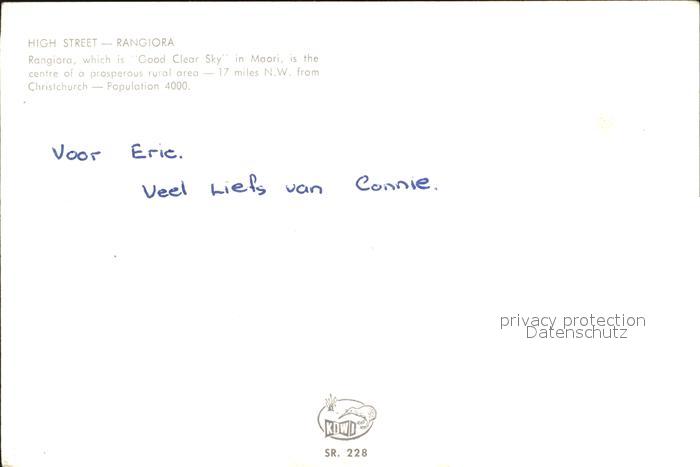 HIGH STREET — RANGIORA
Rangiora, which is "Good Clear Sky" in Maori, is the
centre of a prosperous rural area — 17 miles N.W. from
Christchurch — Population 4000.
Voor Eric.
Veel Liefs van Connie.
privacy protection
Datenschutz
KIWI
SR. 228